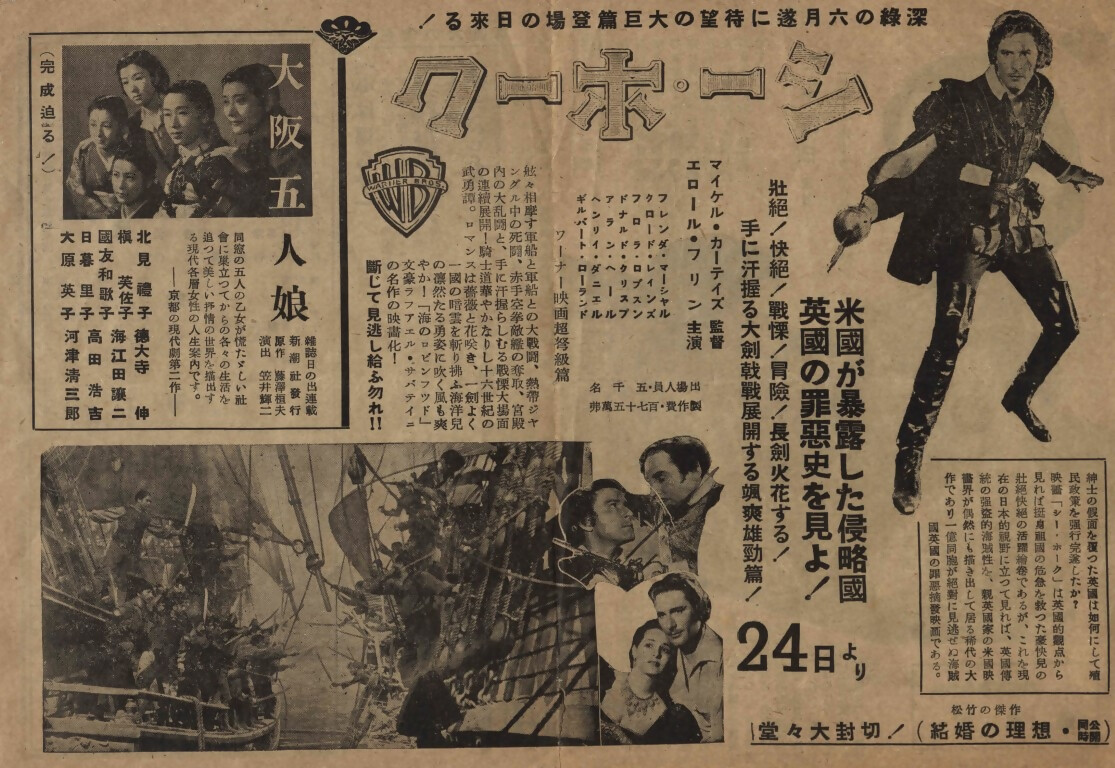 深綠の六月遂に待望の大巨篇登場の日來る！
シー・ホーク
マイケル・カーテイズ 監督
エロール・フリン 主演
フレンダ・マーシャル
クロード・レインズ
フロラ・ロブスン
ドナルド・クリスプ
アラン・ヘール
ヘンリイ・ダニエル
ギルバート・ローランド
ワーナー映画超弩級篇
出場人員・五千名
製作費・百七十五萬弗
壯絕！快絕！戰慄！冒險！長劍火花する！
手に汗握る大劍戟戰展開する颯爽雄勁篇！
米國が暴露した侵略國
英國の罪惡史を見よ！
WARNER BROS.
WB
舷々相摩す軍船と軍船との大戰鬪、熱帶ジャ
ングル中の死鬪、赤手空拳敵艦の奪取、宮殿
內の大亂鬪と、手に汗握らしむる戰慄大場面
の連續展開！騎士道華やかなりし十六世紀の
武勇譚。ロマンスは薔薇と花咲き、一劍よく
一國の暗雲を斬り拂ふ海洋兒
の凛然たる勇姿に吹く風も爽
やか！「海のロビンフッド」
文豪ラフアエル・サバテイニ
の名作の映畫化！
斷じて見逃し給ふ勿れ!!
紳士の假面を覆つた英國は如何にして殖
民政策を强行完遂したか？
映畫「シー・ホーク」は英國的觀點から
見れば挺身祖國の危急を救つた豪快兒の
壯絕快絕の活躍繪卷であるが、これを現
在の日本的視野に立つて見れば、英國傳
統の强盜的海賊性を、親英國家の米國映
畫界が偶然にも描き出して居る稀代の大
作であり一億同胞が絕對に見逃せぬ海賊
國英國の罪惡摘發映畫である。
24日より
松竹の傑作
同時公開・結婚の理想）
堂々大封切！
大阪五人娘
（完成迫る！）
雜誌日の出連載
新潮社發行
原作 藤澤桓夫
演出 笠井輝二
同窓の五人の乙女が慌たゞしい社
會に巢立つてからの各々の生活を
追つて美しい抒情の世界を描出す
る現代各層女性の人生案內です。
――京都の現代劇第二作――
北見禮子
槇芙佐子
國友和歌子
日暮里子
大原英子
德大寺伸
海江田讓二
高田浩吉
河津淸三郎